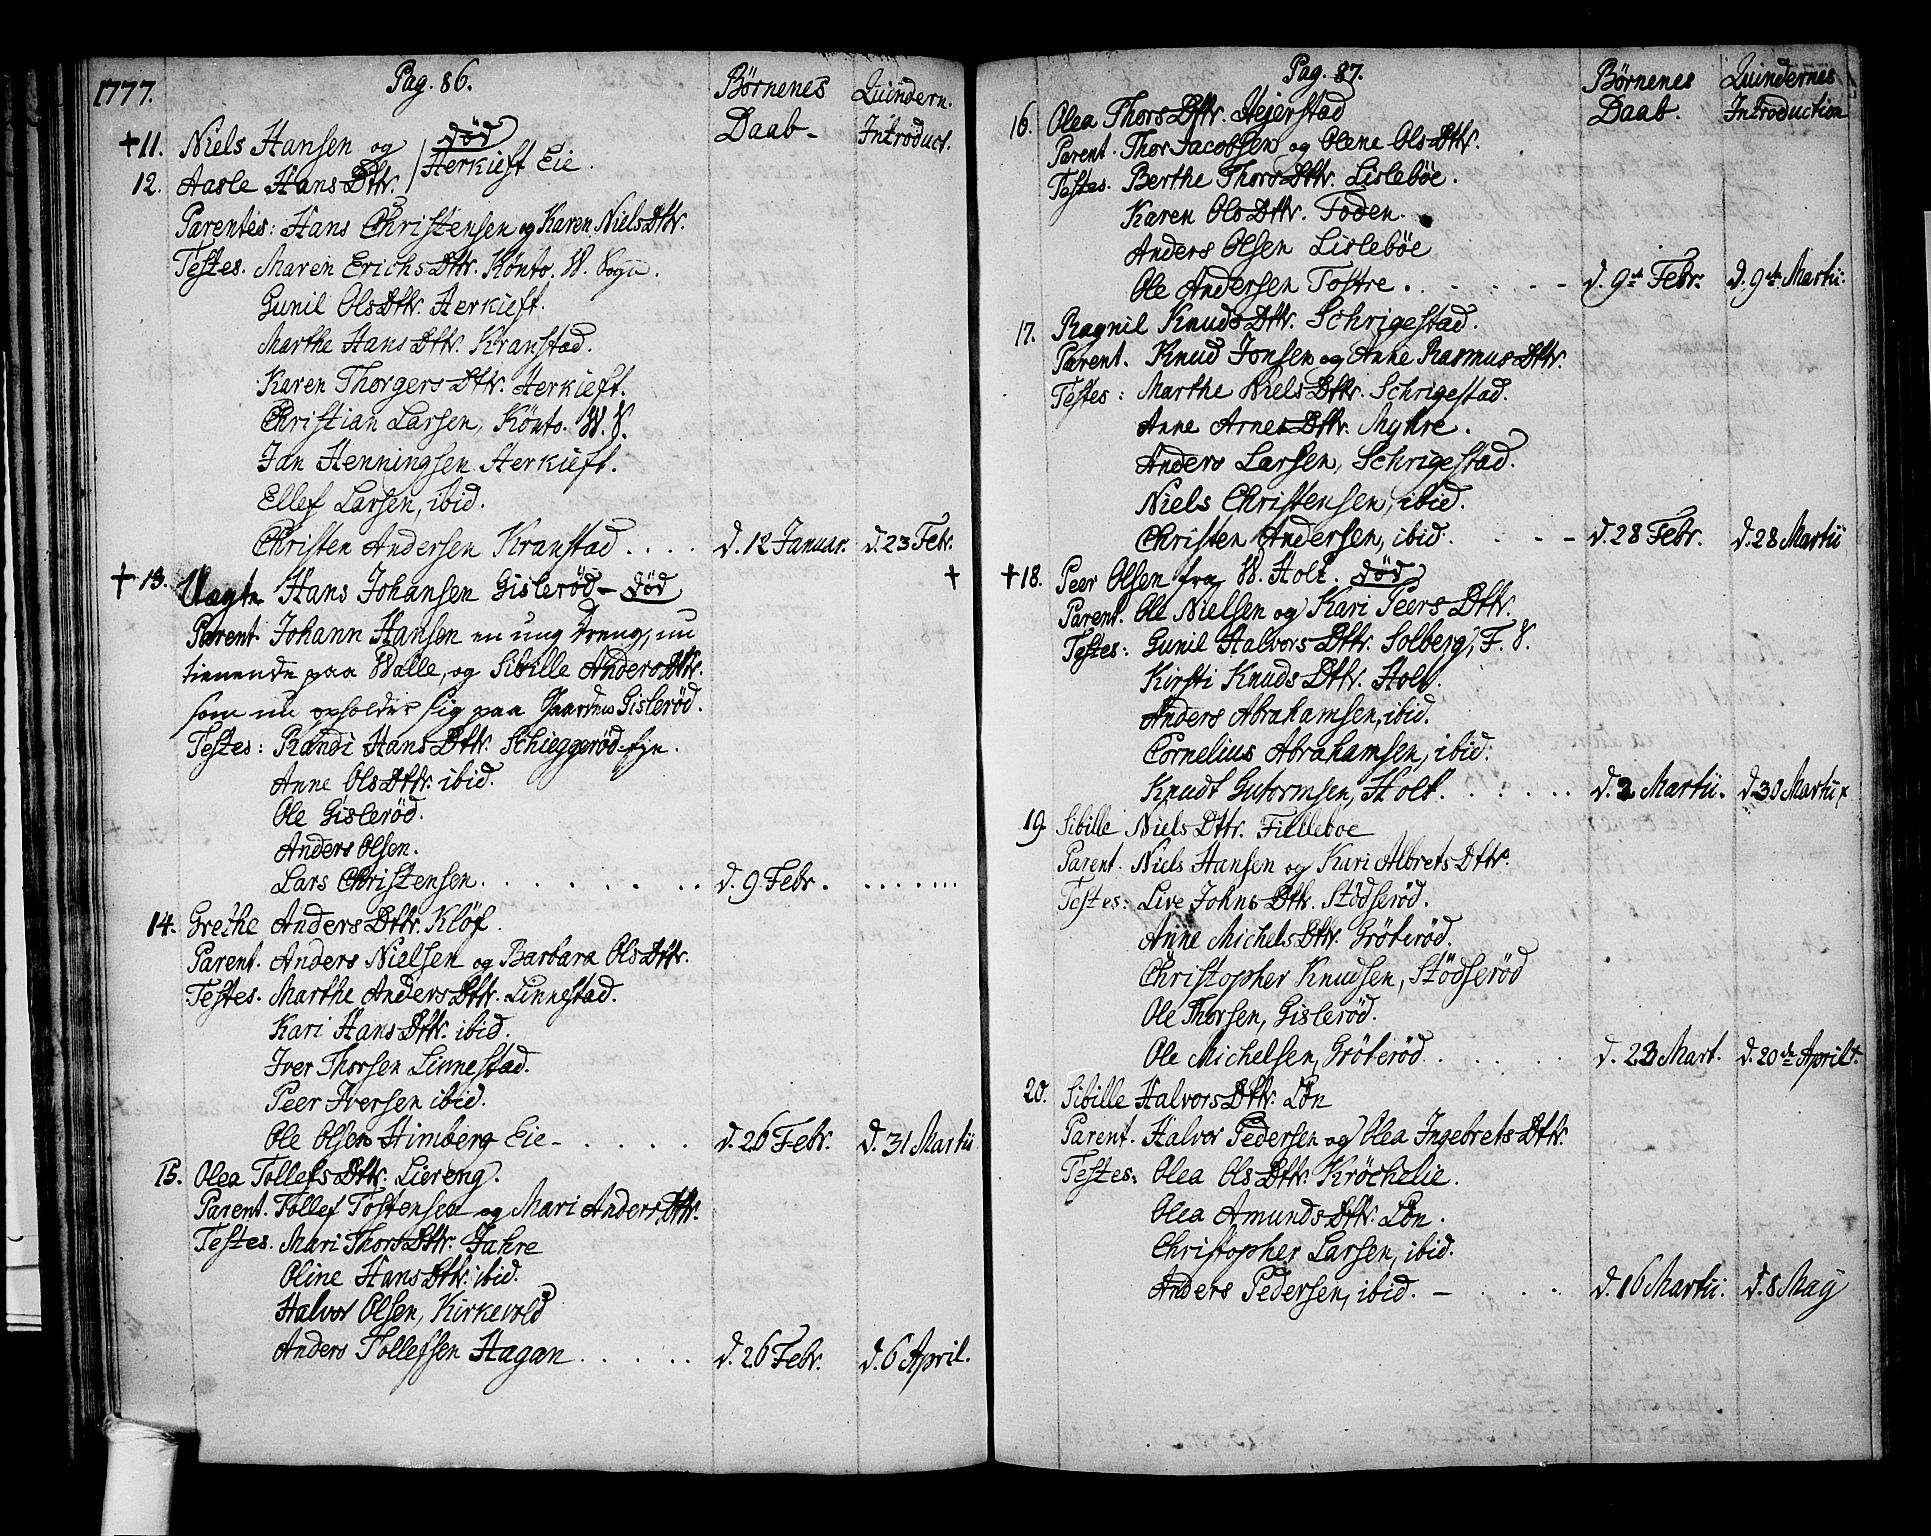 1777. Pag. 86. Børnenes Quindern.
Daab- Introduct.
†11. Niels Hansen og død
12. Aasle Hans Dttr. Herkieft Eie.
Parentes: Hans Christensen og Karen Niels Dttr.
Testes. Maren Erichs Dttr. Könto. W. Sogn.
Gunil Ols Dttr. Herkieft.
Marthe Hans Dttr. Kranstad.
Karen Thorgers Dttr. Herkieft.
Christian Larsen, Könto. W. S.
Jan Henningsen Herkieft.
Ellef Larsen, ibid.
Christen Andersen Kranstad.... d. 12 Januar. d. 23 Febr.
†13. Uægte Hans Johansen Gislerød - død †
Parent. Johann Hansen en ung Dreng, nu
tienende paa Walle, og Sibille Anders Dttr.
som nu opholder sig paa Gaarden Gislerød.
Testes: Randi Hans Dttr. Schieggerød-Eje.
Anne Ols Dttr. ibid.
Ole Gislerød.
Anders Olsen.
Lars Christensen....... d. 9 Febr. .......
14. Grethe Anders Dttr. Kløf.
Parent. Anders Nielsen og Barbara Ols Dttr.
Testes. Marthe Anders Dttr. Linnestad.
Kari Hans Dttr. ibid.
Iver Thorsen Linnestad.
Peer Iversen ibid.
Ole Olsen Himberg Eie-.... d. 26 Febr. d. 31 Martii
15. Olea Tollefs Dttr. Liereng.
Parent. Tollef Tostensen og Mari Anders Dttr.
Testes. Mari Thors Dttr. Jahre
Oline Hans Dttr. ibid.
Halvor Olsen, Kirkevold
Anders Tollefsen Hagan..... d. 26 Febr. d. 6 April.
Pag. 87. Børnenes Quindernes
Daab. Introduction
16. Olea Thors Dttr. Hejerstad
Parent. Thor Jacobsen og Olene Ols Dttr.
Testes. Berthe Thors Dttr. Lislebøe.
Karen Ols Dttr. Foden.
Anders Olsen Lislebøe
Ole Andersen Tostre...... d. 9de Febr. d. 9de Martii.
17. Ragnil Knuds Dttr. Schrigestad.
Parent. Knud Jonsen og Anne Rasmus Dttr.
Testes: Marthe Niels Dttr. Schrigestad.
Anne Arnes Dttr. Myhre.
Anders Larsen, Schrigestad.
Niels Christensen, ibid.
Christen Andersen, ibid.... d. 28 Febr. d. 28 Martii
†18. Peer Olsen fra W. Holt. død
Parent. Ole Nielsen og Kari Peers Dttr.
Testes: Gunil Halvors Dttr. Solberg, F. S.
Kirsti Knuds Dttr. Holt.
Anders Abrahamsen, ibid.
Cornelius Abrahamsen, ibid.
Knudt Gutormsen, Holt...... d. 2 Martii. d. 30 Martii
19. Sibille Niels Dttr. Filleboe
Parent. Niels Hansen og Kari Albrets Dttr.
Testes: Live Johns Dttr. Stödserød.
Anne Michels Dttr. Gröterød.
Christopher Knudsen, Stödserød
Ole Thorsen, Gislerød.
Ole Michelsen, Gröterød..... d. 23 Mart. d. 20de April.
20. Sibille Halvors Dttr. Lön
Parent. Halvor Pedersen og Olea Ingebrets Dttr.
Testes: Olea Ols Dttr. Kröchelie.
Olea Amunds Dttr. Lön.
Christopher Larsen, ibid.
Anders Pedersen, ibid. -... d. 16 Martii. d. 8 May